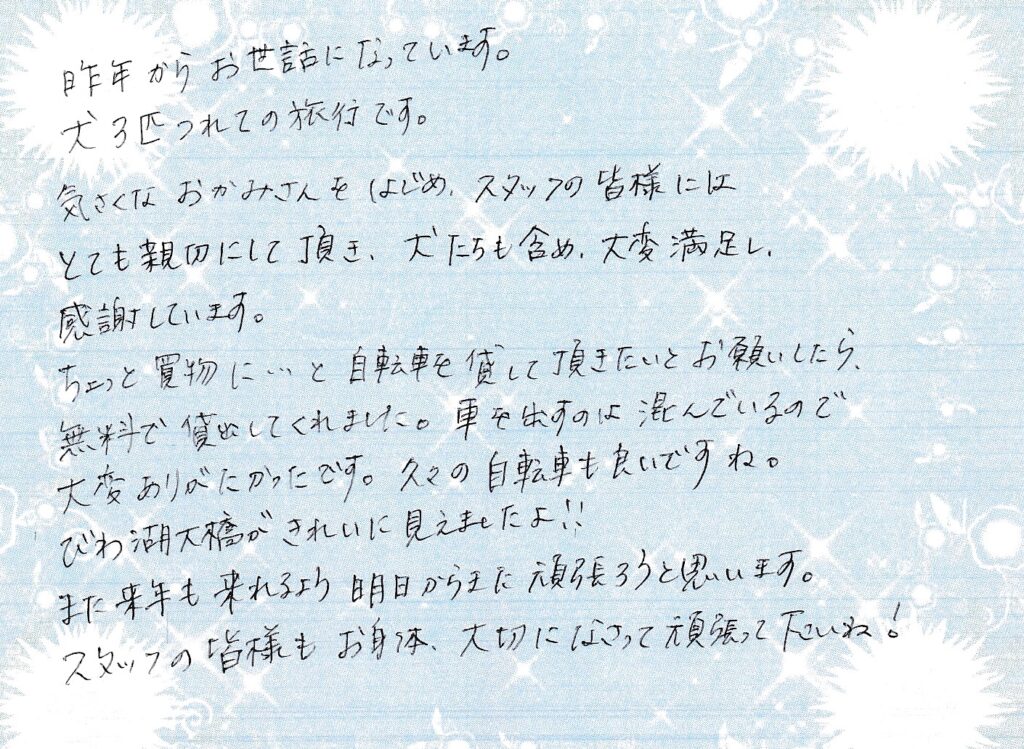 昨年からお世話になっています。
犬3匹つれての旅行です。
気さくなおかみさんをはじめ、スタッフの皆様には
とても親切にして頂き、犬たちも含め、大変満足し、
感謝しています。
ちょっと買物に…と自転車を貸して頂きたいとお願いしたら、
無料で貸出してくれました。車を出すのは混んでいるので
大変ありがたかったです。久々の自転車も良いですね。
びわ湖大橋がきれいに見えましたよ!!
また来年も来れるよう明日からまた頑張ろうと思います。
スタッフの皆様もお身体、大切になさって頑張って下さいね!